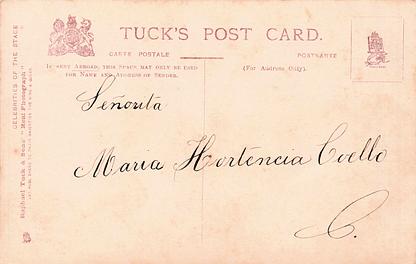 TUCK'S POST CARD.
CARTE POSTALE
POSTKARTE
If sent Abroad, this Space may only be used
for Name and Address of Sender.
(For Address Only).
Señorita
Maria Hortencia Coello
C.
CELEBRITIES OF THE STAGE
Raphael Tuck & Sons' "Real Photograph"